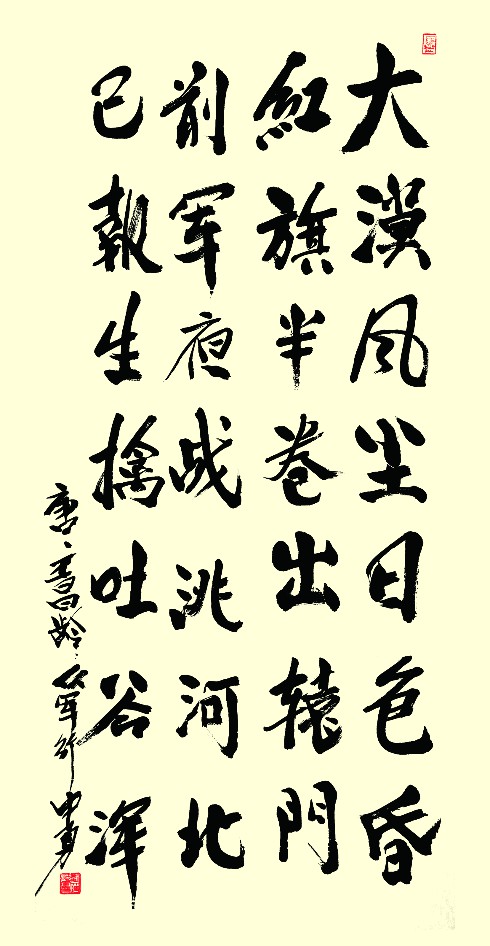 大漠风尘日色昏
紅旗半卷出辕門
前军夜战洮河北
已報生擒吐谷浑
唐、王昌龄、从军行